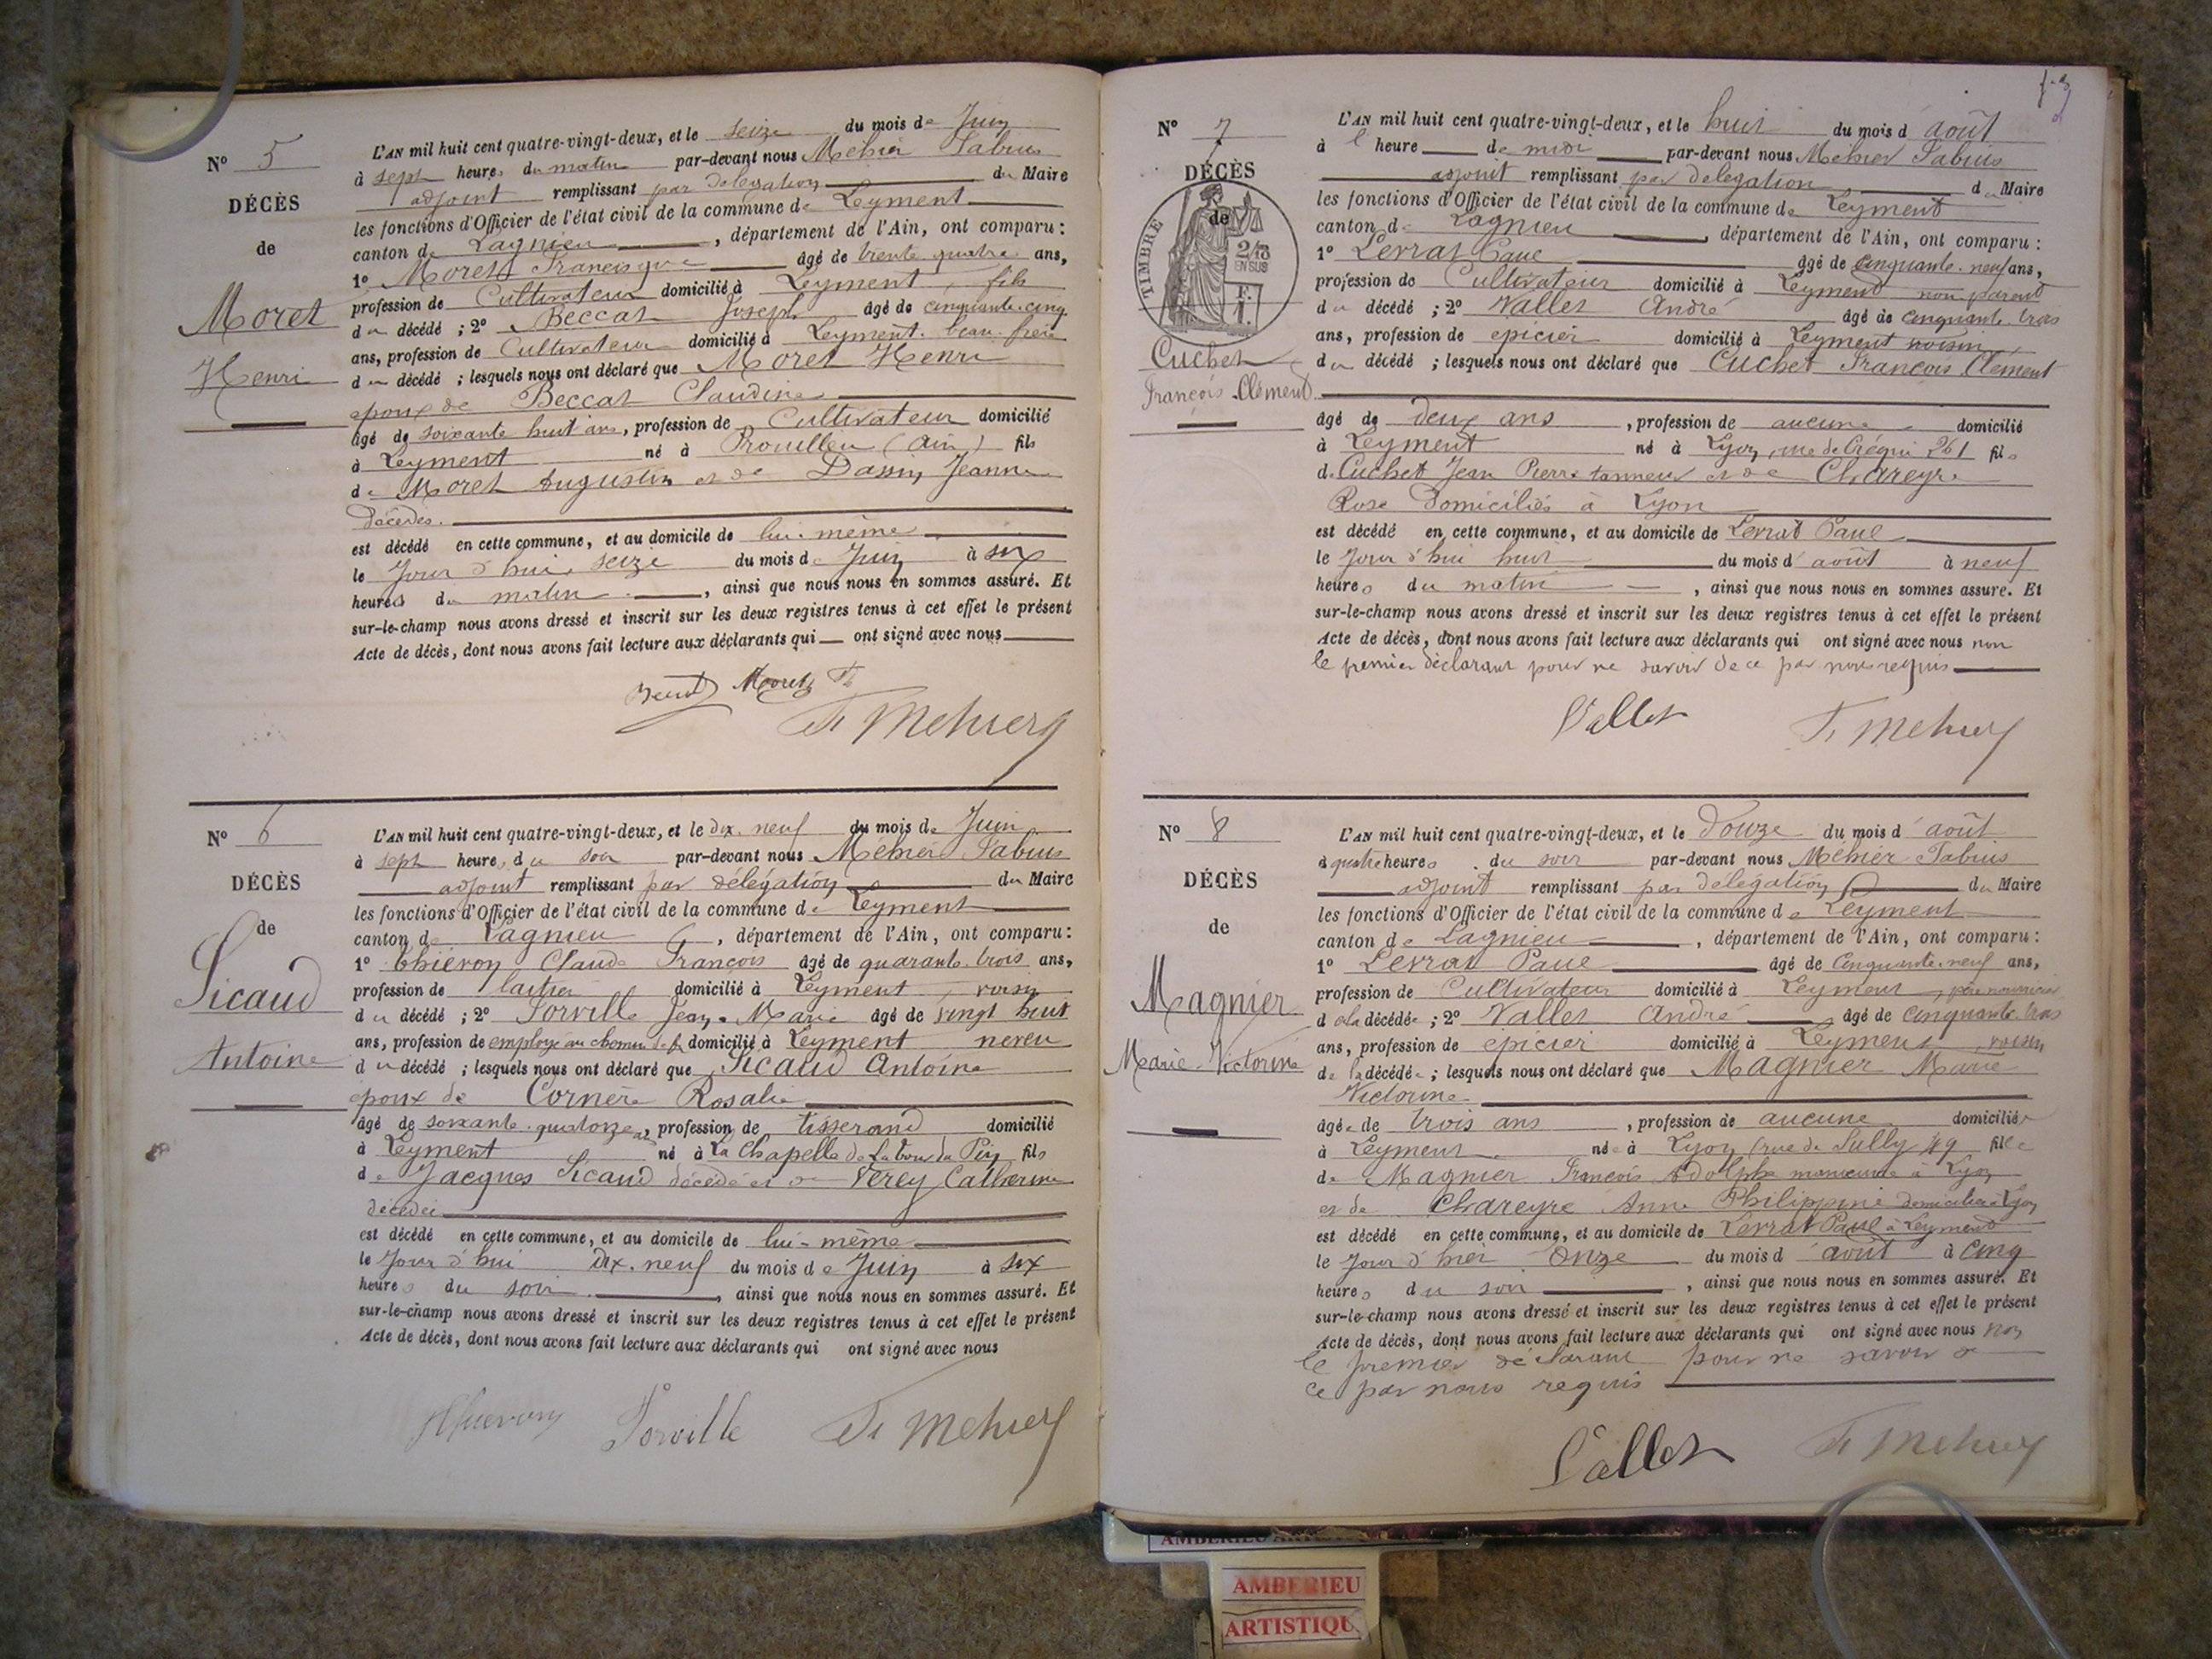 N° 5
DÉCÈS
de
Moret
Henri
L'AN mil huit cent quatre-vingt-deux, et le seize du mois de Juin
à sept heures du matin par-devant nous Mehier Fabius
adjoint remplissant par délégation du Maire
les fonctions d'Officier de l'état civil de la commune de Leyment
canton de Lagnieu, département de l'Ain, ont comparu :
1° Moret Francisque âgé de trente quatre ans,
profession de Cultivateur domicilié à Leyment, fils
du décédé ; 2° Beccat Joseph âgé de cinquante-cinq
ans, profession de Cultivateur domicilié à Leyment. beau-frère
du décédé ; lesquels nous ont déclaré que Moret Henri
époux de Beccat Claudine
âgé de soixante huit ans, profession de Cultivateur domicilié
à Leyment né à Proulieu (Ain) fils
de Moret Augustin et de Jeanne
décédés.
est décédé en cette commune, et au domicile de lui-même
le Jour d'hui, seize du mois de Juin à six
heures du matin, ainsi que nous nous en sommes assuré. Et
sur-le-champ nous avons dressé et inscrit sur les deux registres tenus à cet effet le présent
Acte de décès, dont nous avons fait lecture aux déclarants qui ont signé avec nous
Moret F.
F. Mehier
N° 6
DÉCÈS
de
Sicaud
Antoine
L'AN mil huit cent quatre-vingt-deux, et le dix-neuf du mois de Juin
à sept heures du soir par-devant nous Mehier Fabius
adjoint remplissant par délégation du Maire
les fonctions d'Officier de l'état civil de la commune de Leyment
canton de Lagnieu, département de l'Ain, ont comparu :
1° Thiévon Claude François âgé de quarante-trois ans,
profession de laitier domicilié à Leyment, voisin
du décédé ; 2° Sorville Jean-Marie âgé de vingt huit
ans, profession de employé au chemin de f. domicilié à Leyment neveu
du décédé ; lesquels nous ont déclaré que Sicaud Antoine
époux de Cornère Rosalie
âgé de soixante-quatorze ans, profession de tisserand domicilié
à Leyment né à La Chapelle de Latour du Pin fils
de Jacques Sicaud décédé et de Verey Catherine
décédée
est décédé en cette commune, et au domicile de lui-même
le Jour d'hui Dix-neuf du mois de Juin à six
heures du soir, ainsi que nous nous en sommes assuré. Et
sur-le-champ nous avons dressé et inscrit sur les deux registres tenus à cet effet le présent
Acte de décès, dont nous avons fait lecture aux déclarants qui ont signé avec nous
Thievon Sorville F. Mehier
N° 7
DÉCÈS
de
TIMBRE
2/10
EN SUS
Cuchet
François Clément
L'AN mil huit cent quatre-vingt-deux, et le huit du mois d'août
à l heure de midi par-devant nous Mehier Fabius
adjoint remplissant par délégation du Maire
les fonctions d'Officier de l'état civil de la commune de Leyment
canton de Lagnieu, département de l'Ain, ont comparu :
1° Lerrat Paul âgé de cinquante-neuf ans,
profession de Cultivateur domicilié à Leyment non parent
du décédé ; 2° Vallet André âgé de cinquante-trois
ans, profession de épicier domicilié à Leyment voisin
du décédé ; lesquels nous ont déclaré que Cuchet François Clément
âgé de deux ans, profession de aucune domicilié
à Leyment né à Lyon, rue de Créqui 261 fils
de Cuchet Jean Pierre tanneur et de Chareyre
Rose Domiciliés à Lyon
est décédé en cette commune, et au domicile de Lerrat Paul
le Jour d'hui huit du mois d'août à neuf
heures du matin, ainsi que nous nous en sommes assuré. Et
sur-le-champ nous avons dressé et inscrit sur les deux registres tenus à cet effet le présent
Acte de décès, dont nous avons fait lecture aux déclarants qui ont signé avec nous non
le premier déclarant pour ne savoir de ce par nous requis
Vallet F. Mehier
N° 8
DÉCÈS
de
Magnier
Marie-Victorine
L'AN mil huit cent quatre-vingt-deux, et le Douze du mois d'août
à quatre heures du soir par-devant nous Méhier Fabius
adjoint remplissant par délégation du Maire
les fonctions d'Officier de l'état civil de la commune de Leyment
canton de Lagnieu, département de l'Ain, ont comparu :
1° Lerrat Paul âgé de Cinquante-neuf ans,
profession de Cultivateur domicilié à Leyment, père nourricier
de la décédée ; 2° Vallet André âgé de cinquante-trois
ans, profession de épicier domicilié à Leyment, voisin
de la décédée ; lesquels nous ont déclaré que Magnier Marie
Victorine
âgée de trois ans, profession de aucune domiciliée
à Leyment née à Lyon, (rue de Sully 49 fille
de Magnier François Adolphe manœuvre à Lyon
et de Chareyre Anne Philippine domiciliée à Lyon
est décédé en cette commune, et au domicile de Lerrat Paul à Leyment
le Jour d'hier Onze du mois d'août à cinq
heures du soir, ainsi que nous nous en sommes assuré. Et
sur-le-champ nous avons dressé et inscrit sur les deux registres tenus à cet effet le présent
Acte de décès, dont nous avons fait lecture aux déclarants qui ont signé avec nous non
le premier déclarant pour ne savoir de
ce par nous requis
Vallet F. Mehier
AMBERIEU ARTISTIQUE
AMBERIEU
ARTISTIQU